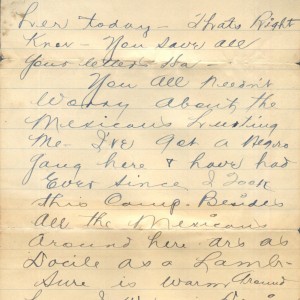 her today - Thats Right
Know - You save all
your letter Ha -
You all Needn't
Worry About the
Mexicans hurting
Me. I've got a Negro
Gang here & have had
Ever since I took
this Camp. Besides
All the Mexicans
Around here are as
Docile as a Lamb -
Sure is warm Around